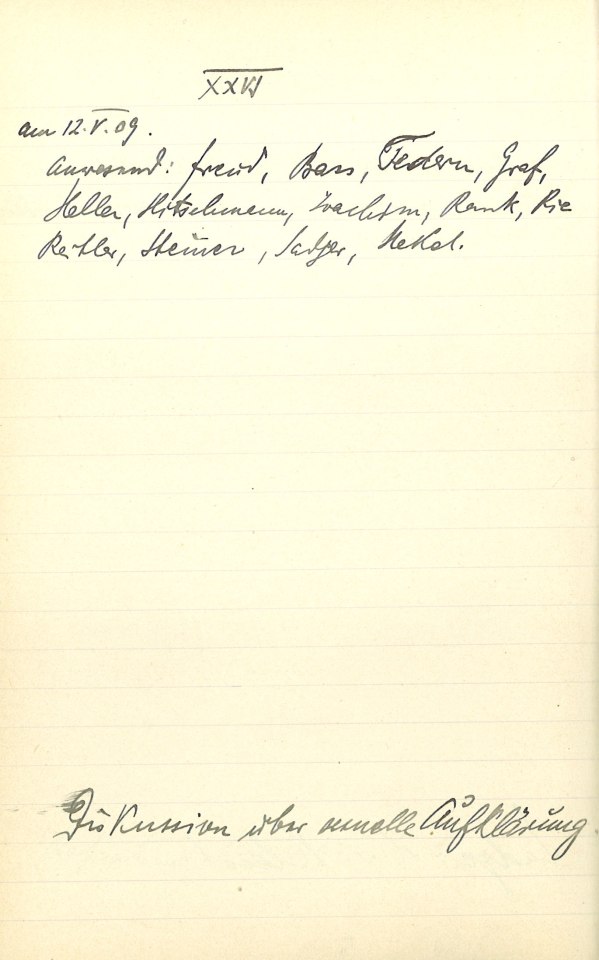 XXVI
am 12. V. 09.
Anwesend: Freud, Bass, Federn, Graf,
Heller, Hitschmann, Joachim, Rank, Rie
Reitler, Steiner, Sadger, Stekel.
Diskussion über sexuelle Aufklärung